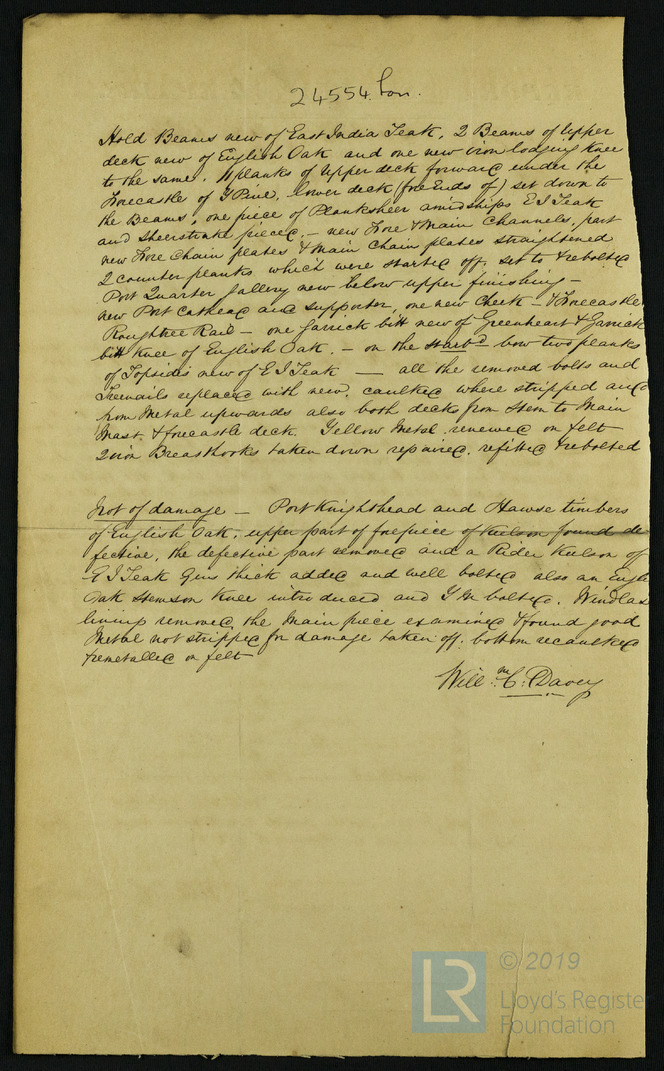 24554 Lon.
Hold Beams new of East India Teak, 2 Beams of Upper
deck new of English Oak and one new iron lodging knee
to the same. 11 planks of Upper deck forward under the
Forecastle of Y Pine, lower deck (fore Ends of) set down to
the Beams, one piece of Planksheer amidships E I Teak
and sheerstrake pieced, – new Fore & Main Channels, part
new Fore Chain plates & Main Chain plates straightened
2 counter planks which were started off, set to & rebolted
Port Quarter Gallery new below upper finishing –
new Port Cathead and supporter, one new Cheek – & Forecastle
Roughtree Rail – one Garrick bitt new of Greenheart & Garrick
bitt knee of English Oak. – on the starbd bow two planks
of Topsides new of E I Teak — all the removed bolts and
Treenails replaced with new, caulked where stripped and
from Metal upwards also both decks from stem to Main
Mast & forecastle deck. Yellow Metal renewed on felt
2 iron Breasthooks taken down repaired, refitted & rebolted
Not of damage – Port Knighthead and Hawse timbers
of English Oak, upper part of forepiece of Keelson found de
fective, the defective part removed and a Rider Keelson of
E I Teak 9ins thick added and well bolted also an Engli
Oak Stemson knee introduced and Y M bolted. Windlas
lining removed, the Main piece examined & found good
Metal not stripped for damage taken off: bottom recaulked
& remetalled on felt
Willm. C. Davey
LR
© 2019
Lloyd's Register
Foundation